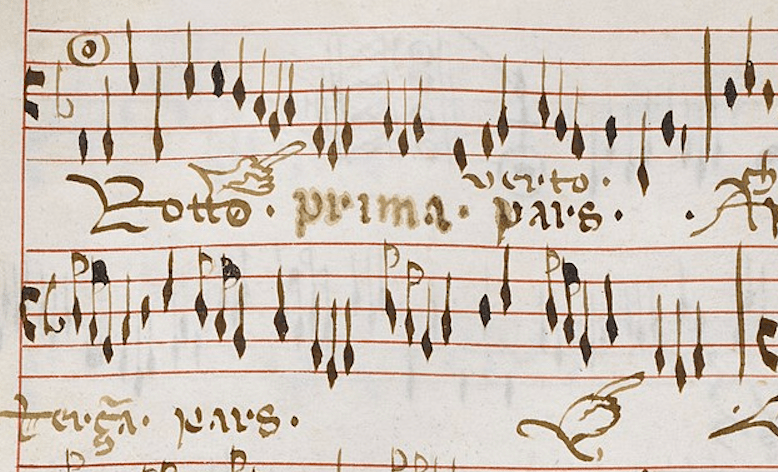 verto.
Rotto. prima. pars.
terza. pars.